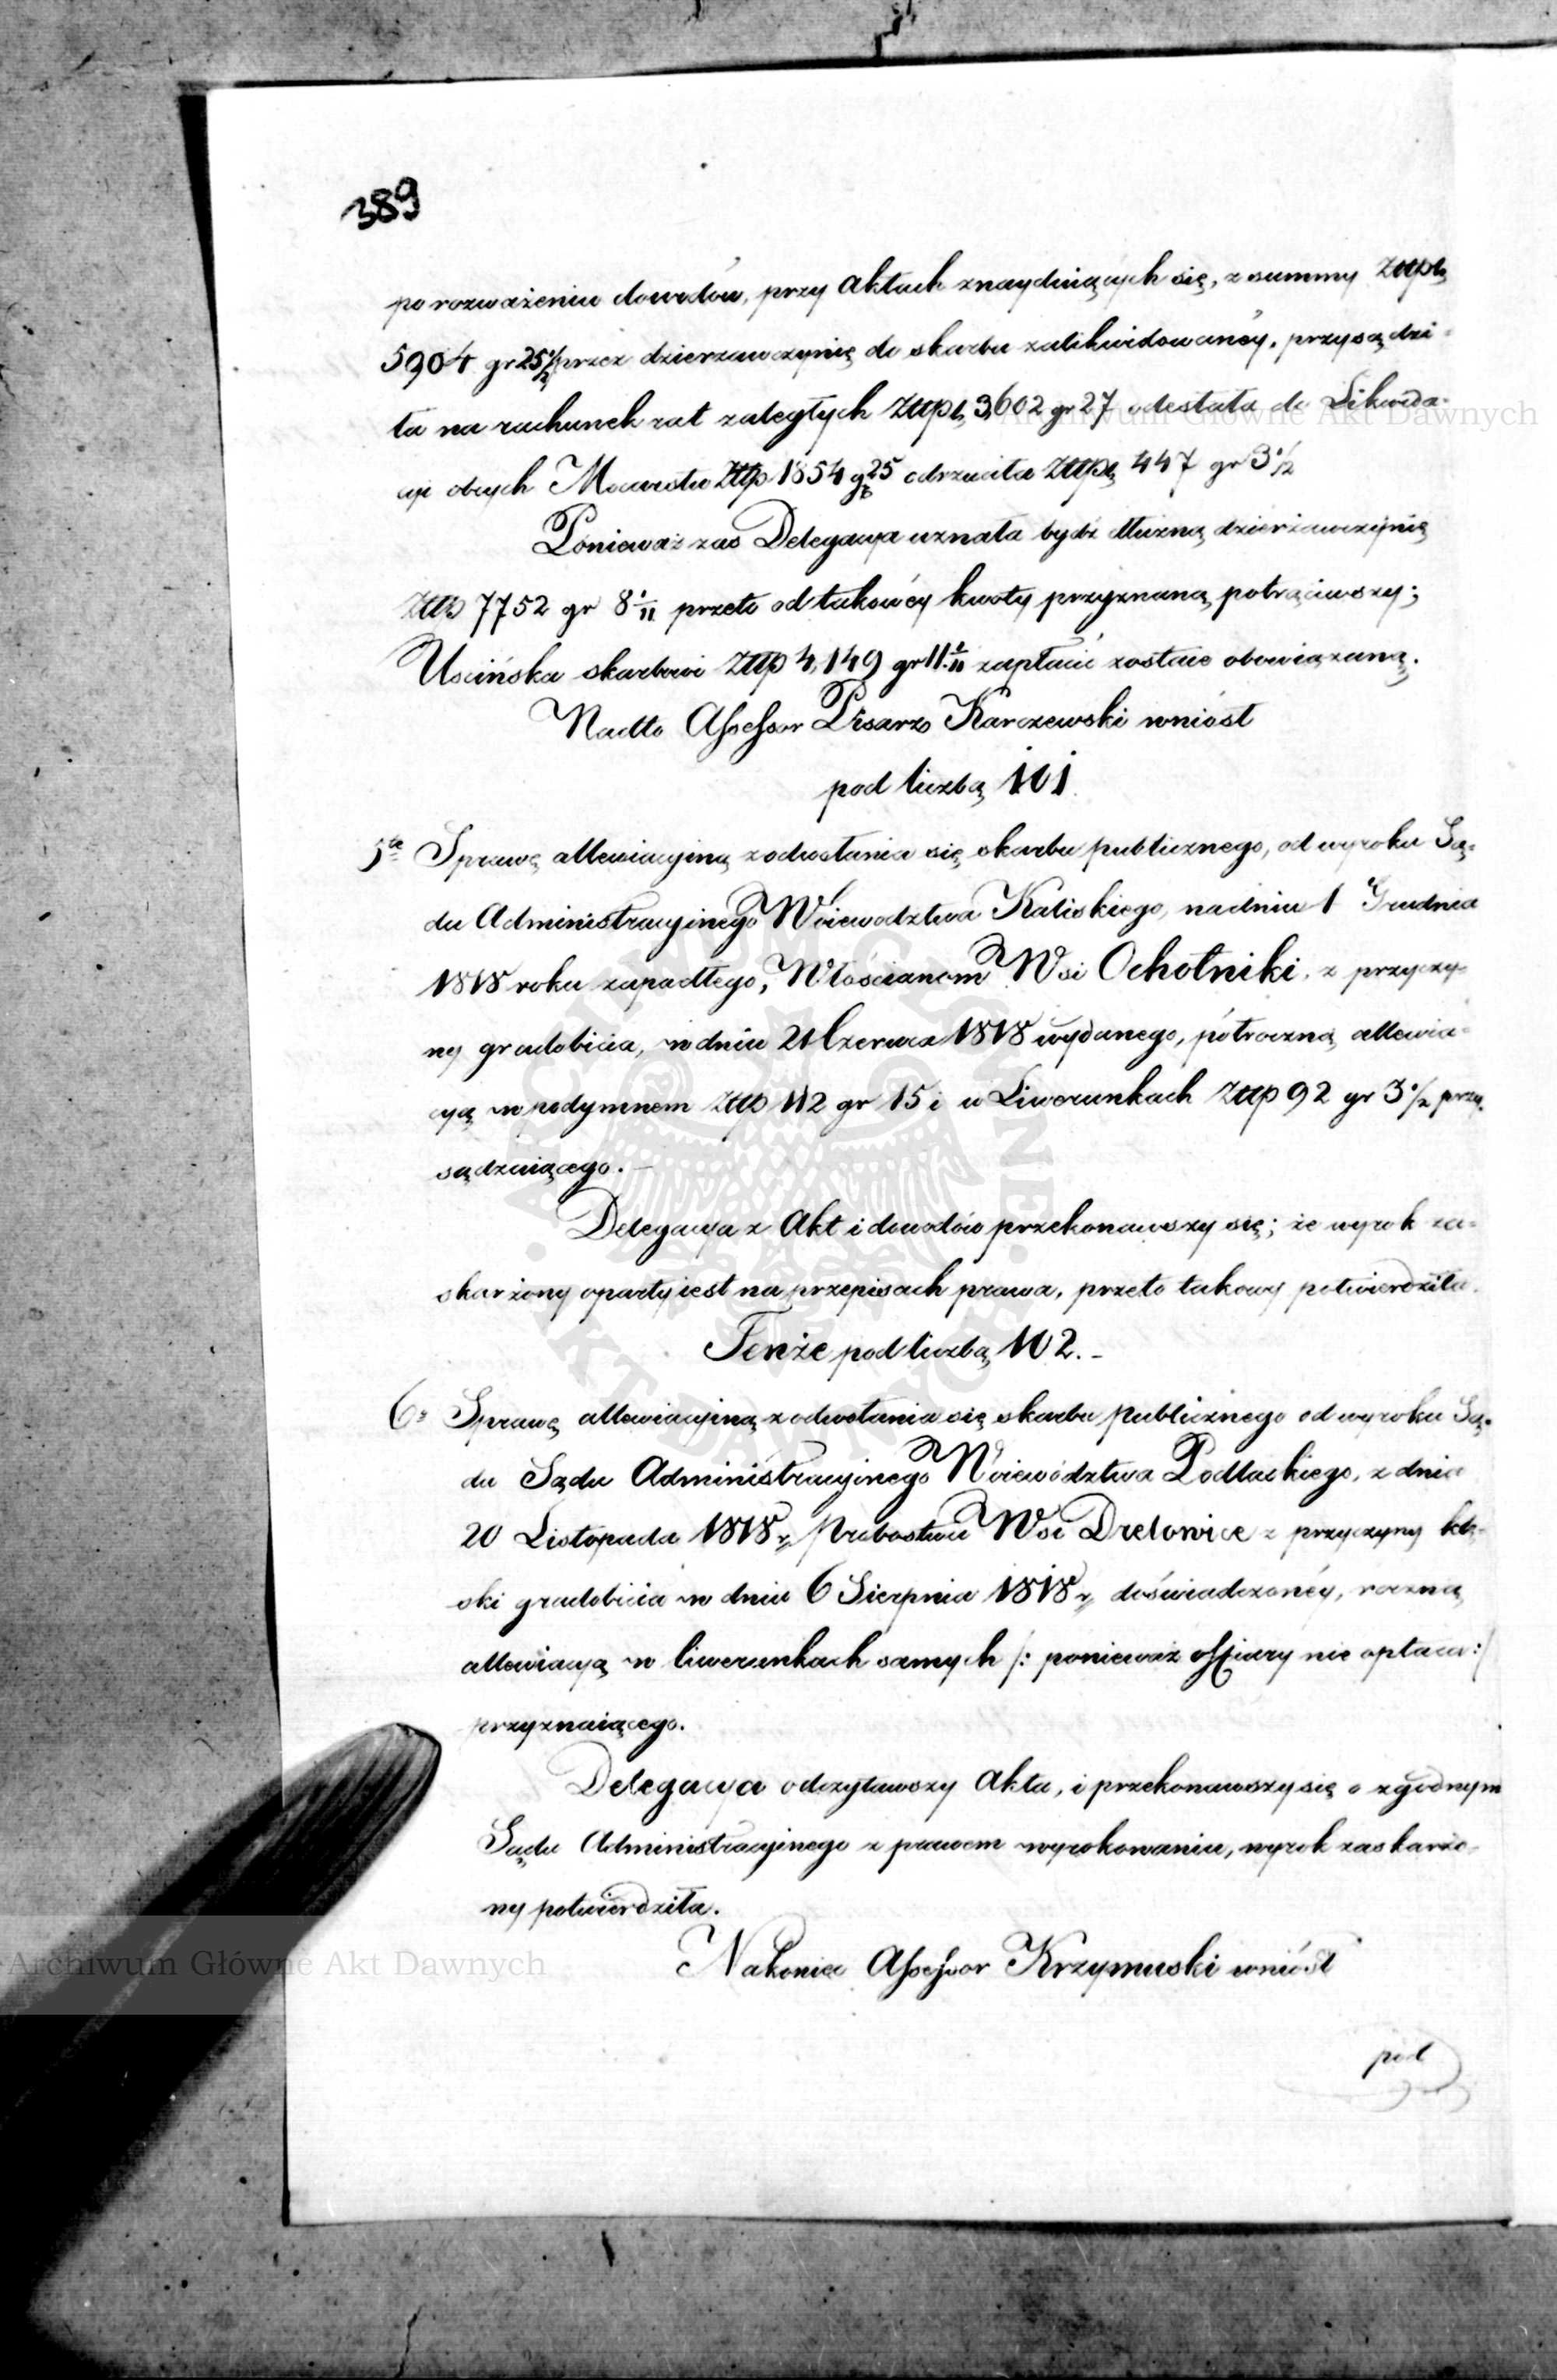 389
po rozważeniu dowodów, przy Aktach znayduiących się, z summy Złłpl.
5904 gr 25½ przez dzierzawczynię do skarbu zalikwidowanéy, przysądzi-
ła na rachunek rat zaległych Złłpl. 3,602 gr 27 odesłała do Likwida-
cyi obcych Mocarstw Złłp 1854 gr 25 odrzuciła Złłpl. 447 gr 3½
Ponieważ zaś Delegacya uznała bydź dłużną dzierżawczynię
Złłp 7752 gr 8 1/11 przeto od takowéy kwoty przyznaną potrąciwszy;
Uścińska skarbowi Złłp 4,149 gr 11. 1/11 zapłacić zostaie obowiązaną.
Nadto Assessor Pisarz Karczewski wniósł
pod liczbą 101.
5ta Sprawę allewiacyiną z odwołania się skarbu publicznego, od wyroku Są-
du Administracyinego Woiewodztwa Kaliskiego, na dniu 1 Grudnia
1818 roku zapadłego, Włościanom Wsi Ochotniki, z przyczy-
ny gradobicia, w dniu 21 Czerwca 1818 wydanego, półroczną allewia-
cyą w podymnem Złłp 112 gr 15 i w Liwerunkach Złłp 92 gr 3½ przy-
sądzaiącego. —
Delegacya z Akt i dowodów przekonawszy się; że wyrok za-
skarżony oparty iest na przepisach prawa, przeto takowy potwierdziła.
Tenże pod liczbą 102. –
6. Sprawę allewiacyiną z odwołania się skarbu publicznego od wyroku Są-
du Sądu Administracyinego Woiewództwa Podlaskiego, z dnia
20 Listopada 1818 r. Probostwu Wsi Drelowice z przyczyny klę-
ski gradobicia w dniu 6 Sierpnia 1818 r. doświadczonéy, roczną
allewiacyą w liwerunkach samych /: ponieważ offiary nie opłaca :/
przyznaiącego.
Delegacya odczytawszy Akta, i przekonawszy się o zgodnym
Sądu Administracyinego z prawem wyrokowaniu, wyrok zaskarżo-
ny potwierdziła.
Nakoniec Assessor Krzymuski wniósł
pod
Archiwum Główne Akt Dawnych
Archiwum Główne Akt Dawnych
ARCHIWUM GŁÓWNE AKT DAWNYCH